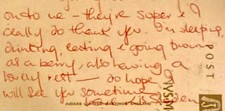 on to me – they're super & I
really do thank you. I'm sleeping,
painting, eating & going brown
as a berry, also having a
lovely rest — do hope I
will see you sometime
POST